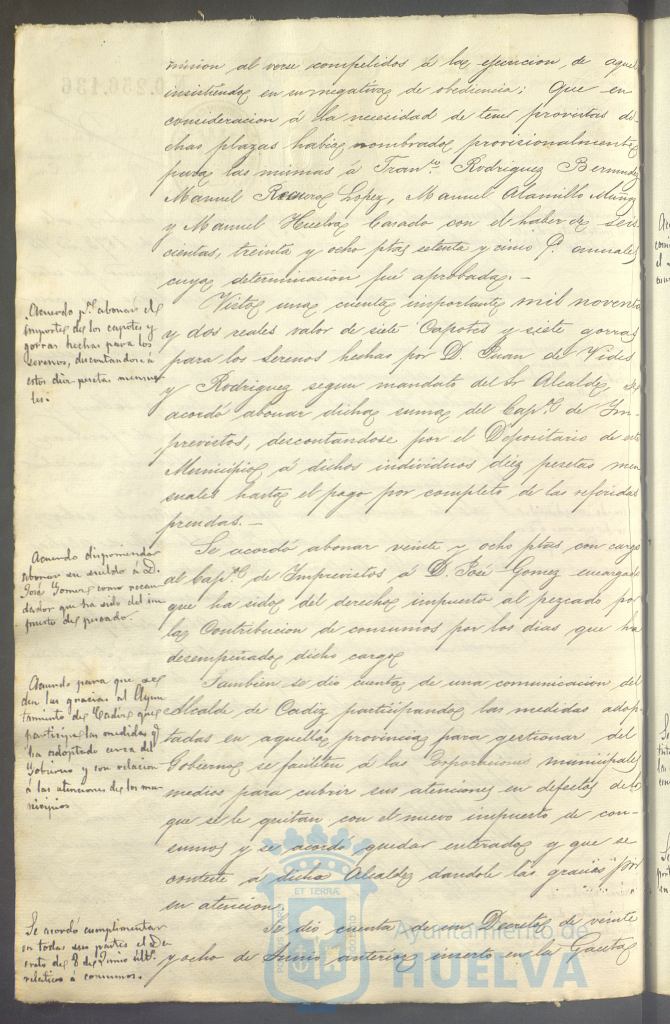 mision al verse compelidos á la ejecucion de aquel
insistiendo en su negativa de obediencia; Que en
consideracion á la necesidad de tener provistas di-
chas plazas habia nombrado provisionalmente
para las mismas á Franco. Rodriguez Bermudez
Manuel Romero Lopez, Manuel Alamillo Muñoz
y Manuel Huelva Casado con el haber de seis
cientas, treinta y ocho ptas setenta y cinco anuales
cuya determinacion fué aprobada.—
Acuerdo pa. abonar el
importe de los capotes y
gorras hechas para los
serenos, descontandose á
estos diez pesetas mensua-
les.
Vista una cuenta importante mil noventa
y dos reales valor de siete Capotes y siete gorras
para los Serenos hechas por D. Juan de Vides
y Rodriguez segun mandato del Sr Alcalde, se
acordó abonar dicha suma del Capo. de Im-
previstos, descontandose por el Depositario de este
Municipio á dichos individuos diez pesetas men
suales hasta el pago por completo de las referidas
prendas.—
Acuerdo disponiendo
abonar su sueldo á D.
José Gomez como recau
dador que ha sido del im
puesto de pescado.
Se acordó abonar veinte y ocho ptas con cargo
al Capo. de Imprevistos á D. José Gomez encargado
que ha sido del derecho impuesto al pezcado por
la Contribucion de consumos por los dias que ha
desempeñado dicho cargo
Acuerdo para que se
den las gracias al Ayun
tamiento de Cadiz que
participa las medidas q.
ha adoptado cerca del
Gobierno y con relacion
á las atenciones de los mu
nicipios
Tambien se dió cuenta de una comunicacion del
Alcalde de Cadiz participando las medidas adop-
tadas en aquella provincia para gestionar del
Gobierno se faciliten á las Corporaciones municipales
medios para cubrir sus atenciones en defecto de los
que se le quitan con el nuevo impuesto de con-
sumos y se acordó quedar enterado y que se
conteste á dicho Alcalde dandole las gracias por
su atencion.
Se acordó cumplimentar
en todas sus partes el De
creto de 28 de Junio últo.
relativo á consumos.
Se dió cuenta de un Decreto de veinte
y ocho de Junio anterior inserto en la Gaceta
Ayuntamiento de
HUELVA
ET TERRÆ